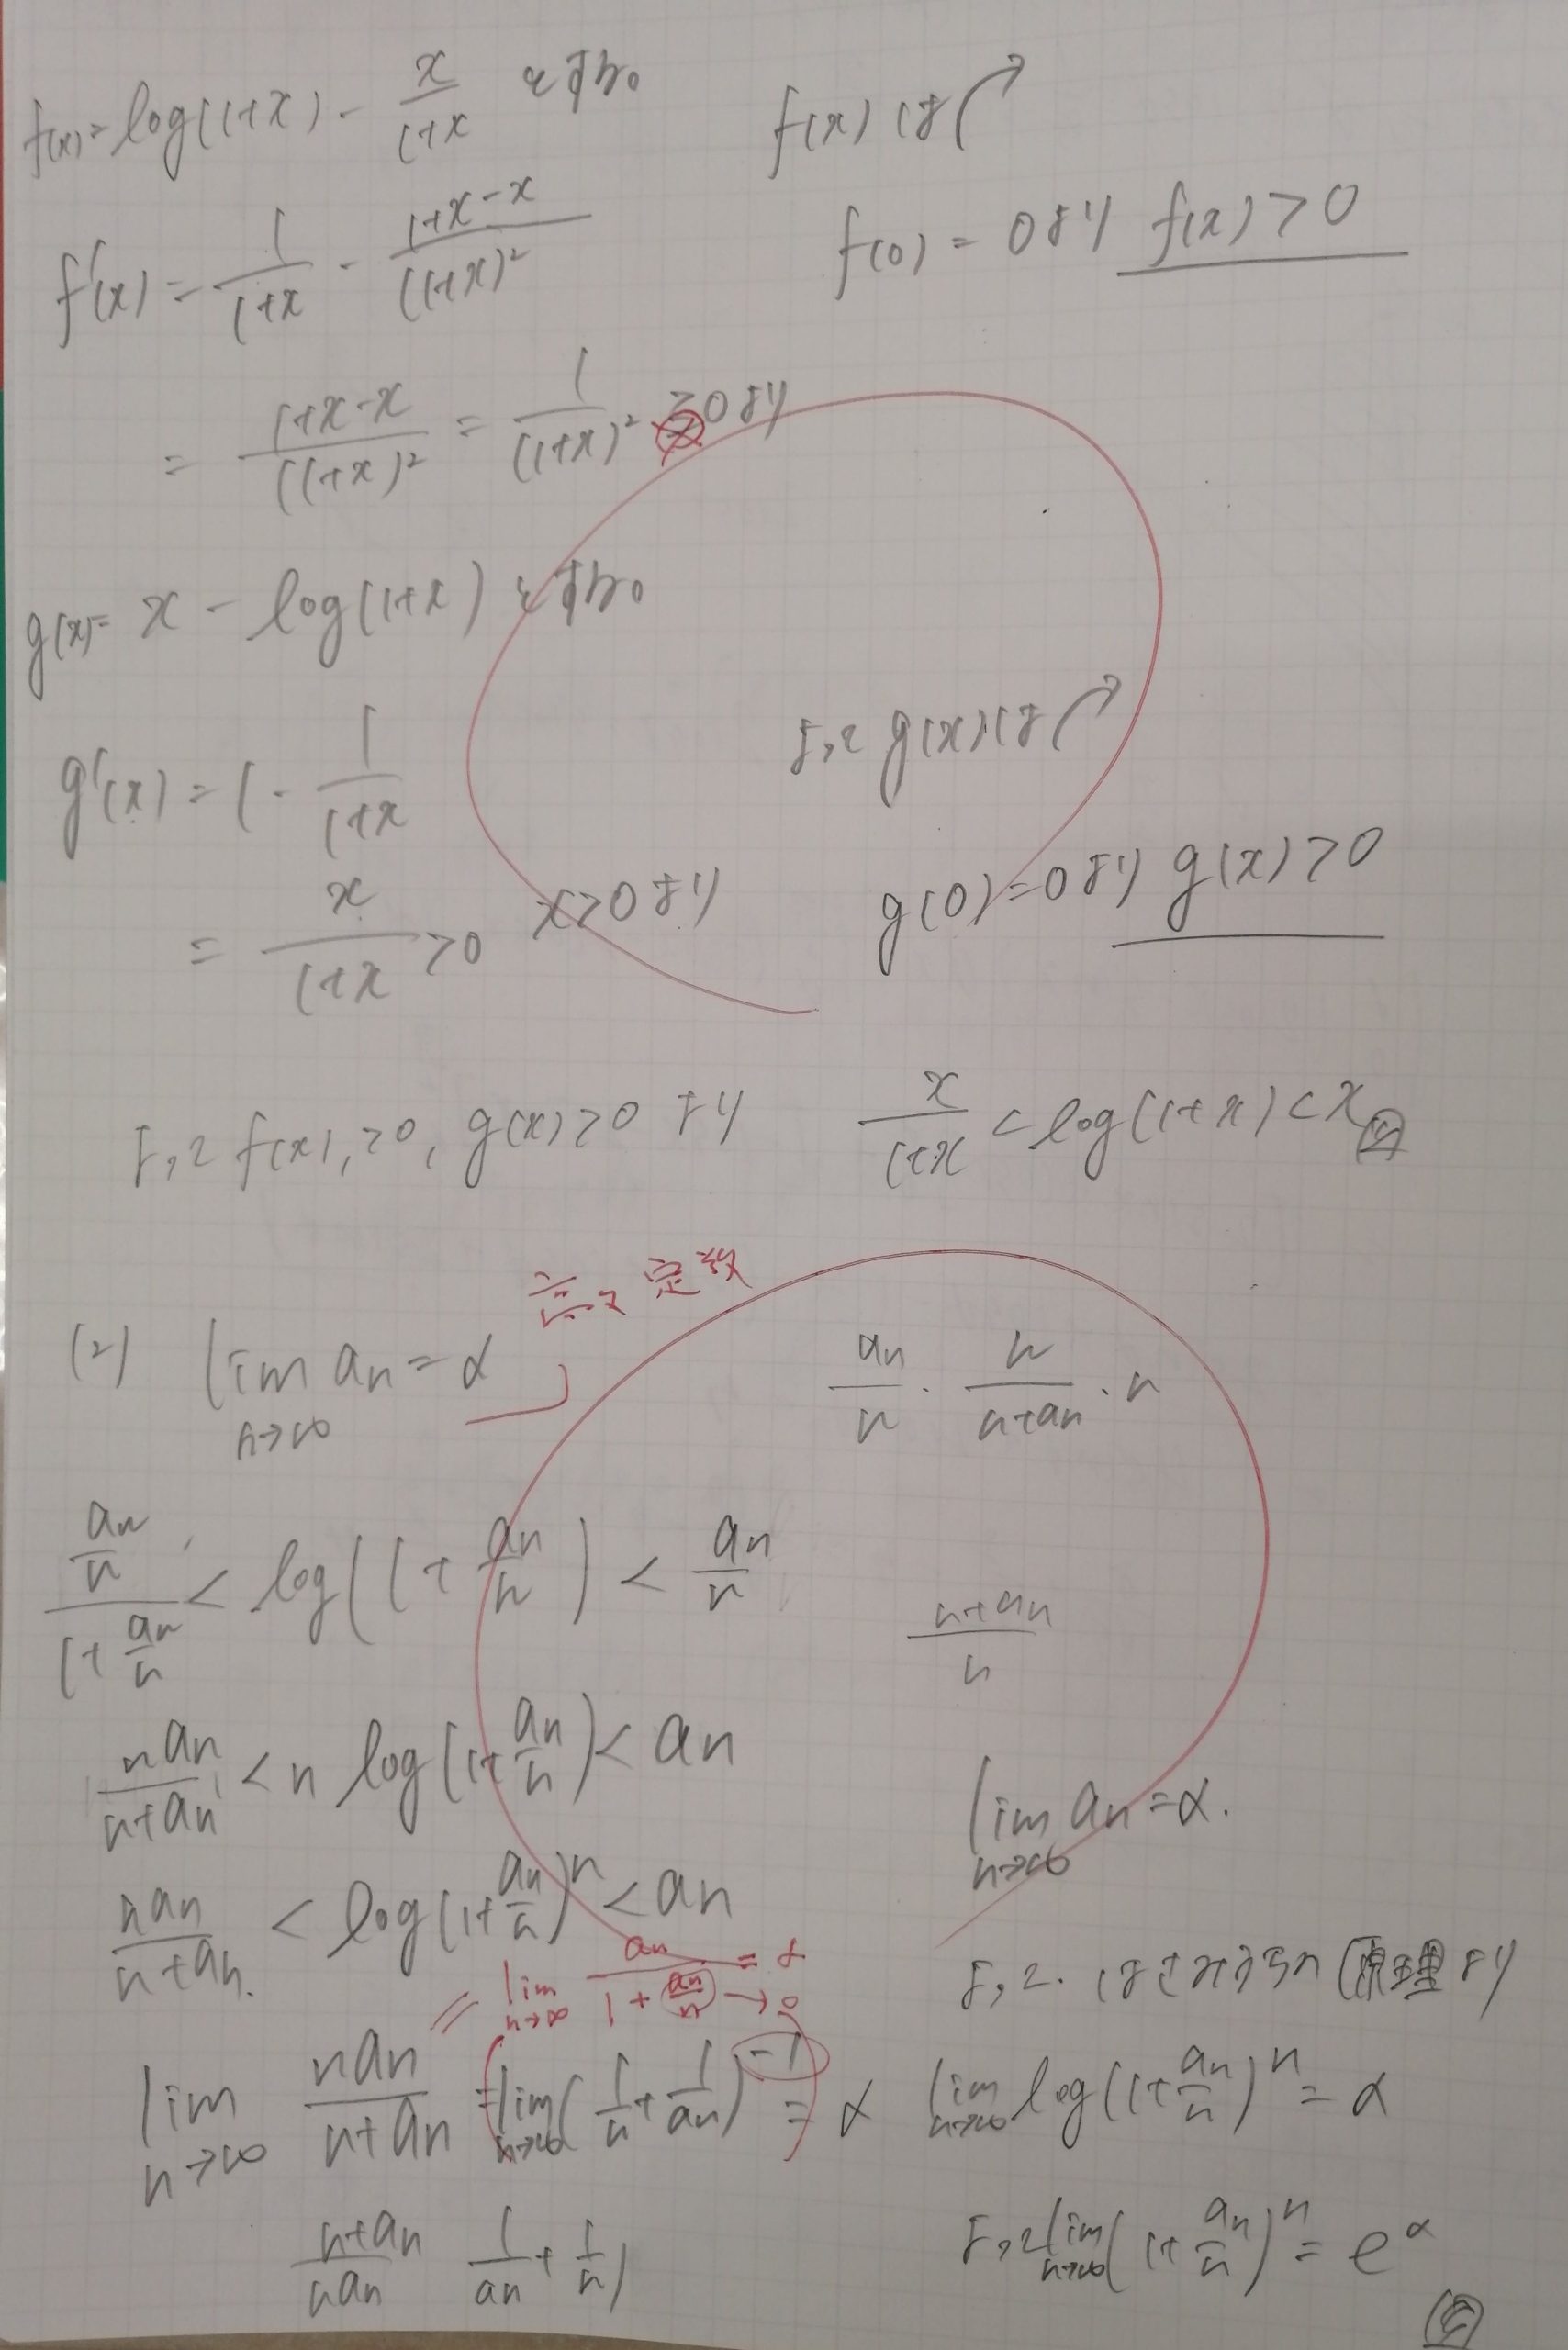 f(x)=log(1+x)-x/(1+x) とする。
f'(x)=1/(1+x)-(1+x-x)/(1+x)²
=(1+x-x)/(1+x)²=1/(1+x)² >0より
f(x)は↗
f(0)=0より f(x)>0
g(x)=x-log(1+x)とする。
g'(x)=1-1/(1+x)
=x/(1+x)>0 x>0より
よって g(x)は↗
g(0)=0より g(x)>0
よって f(x)>0, g(x)>0より x/(1+x)<log(1+x)<x
(2) lim n→∞ an=α
定数
an/n・n/(n+an)・n
(an/n)/(1+an/n)<log(1+an/n)<an/n
(n+an)/n
nan/(n+an)<n log(1+an/n)<an
lim n→∞ an=α.
nan/(n+an)<log(1+an/n)ⁿ<an
= lim n→∞ an/(1+an/n)=α
→0
よって.はさみうちの原理より
lim n→∞ nan/(n+an)=lim n→∞(1/n+1/an)⁻¹=α
lim n→∞ log(1+an/n)ⁿ=α
(n+an)/nan 1/an+1/n)
よって lim n→∞(1+an/n)ⁿ=e^α